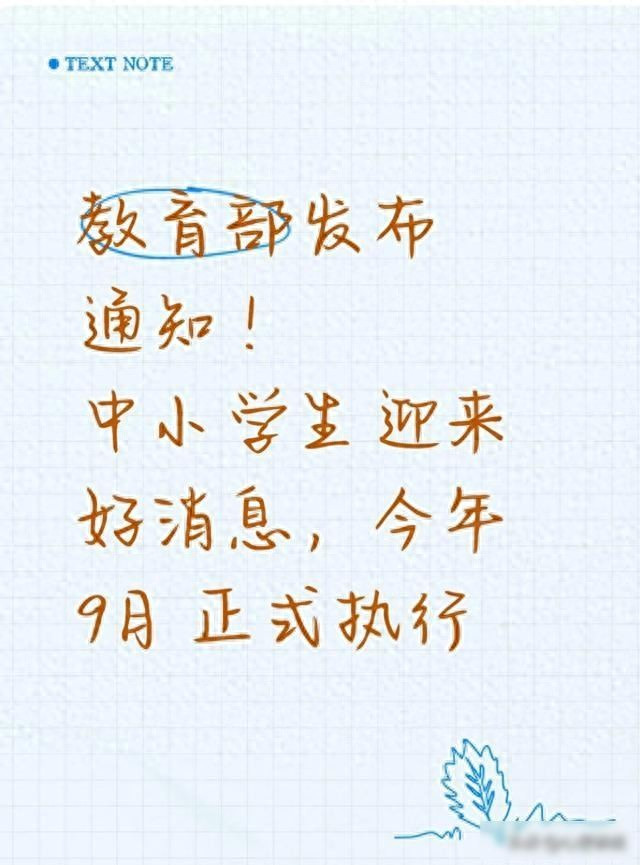 TEXT NOTE
教育部发布
通知！
中小学生迎来
好消息，今年
9月正式执行